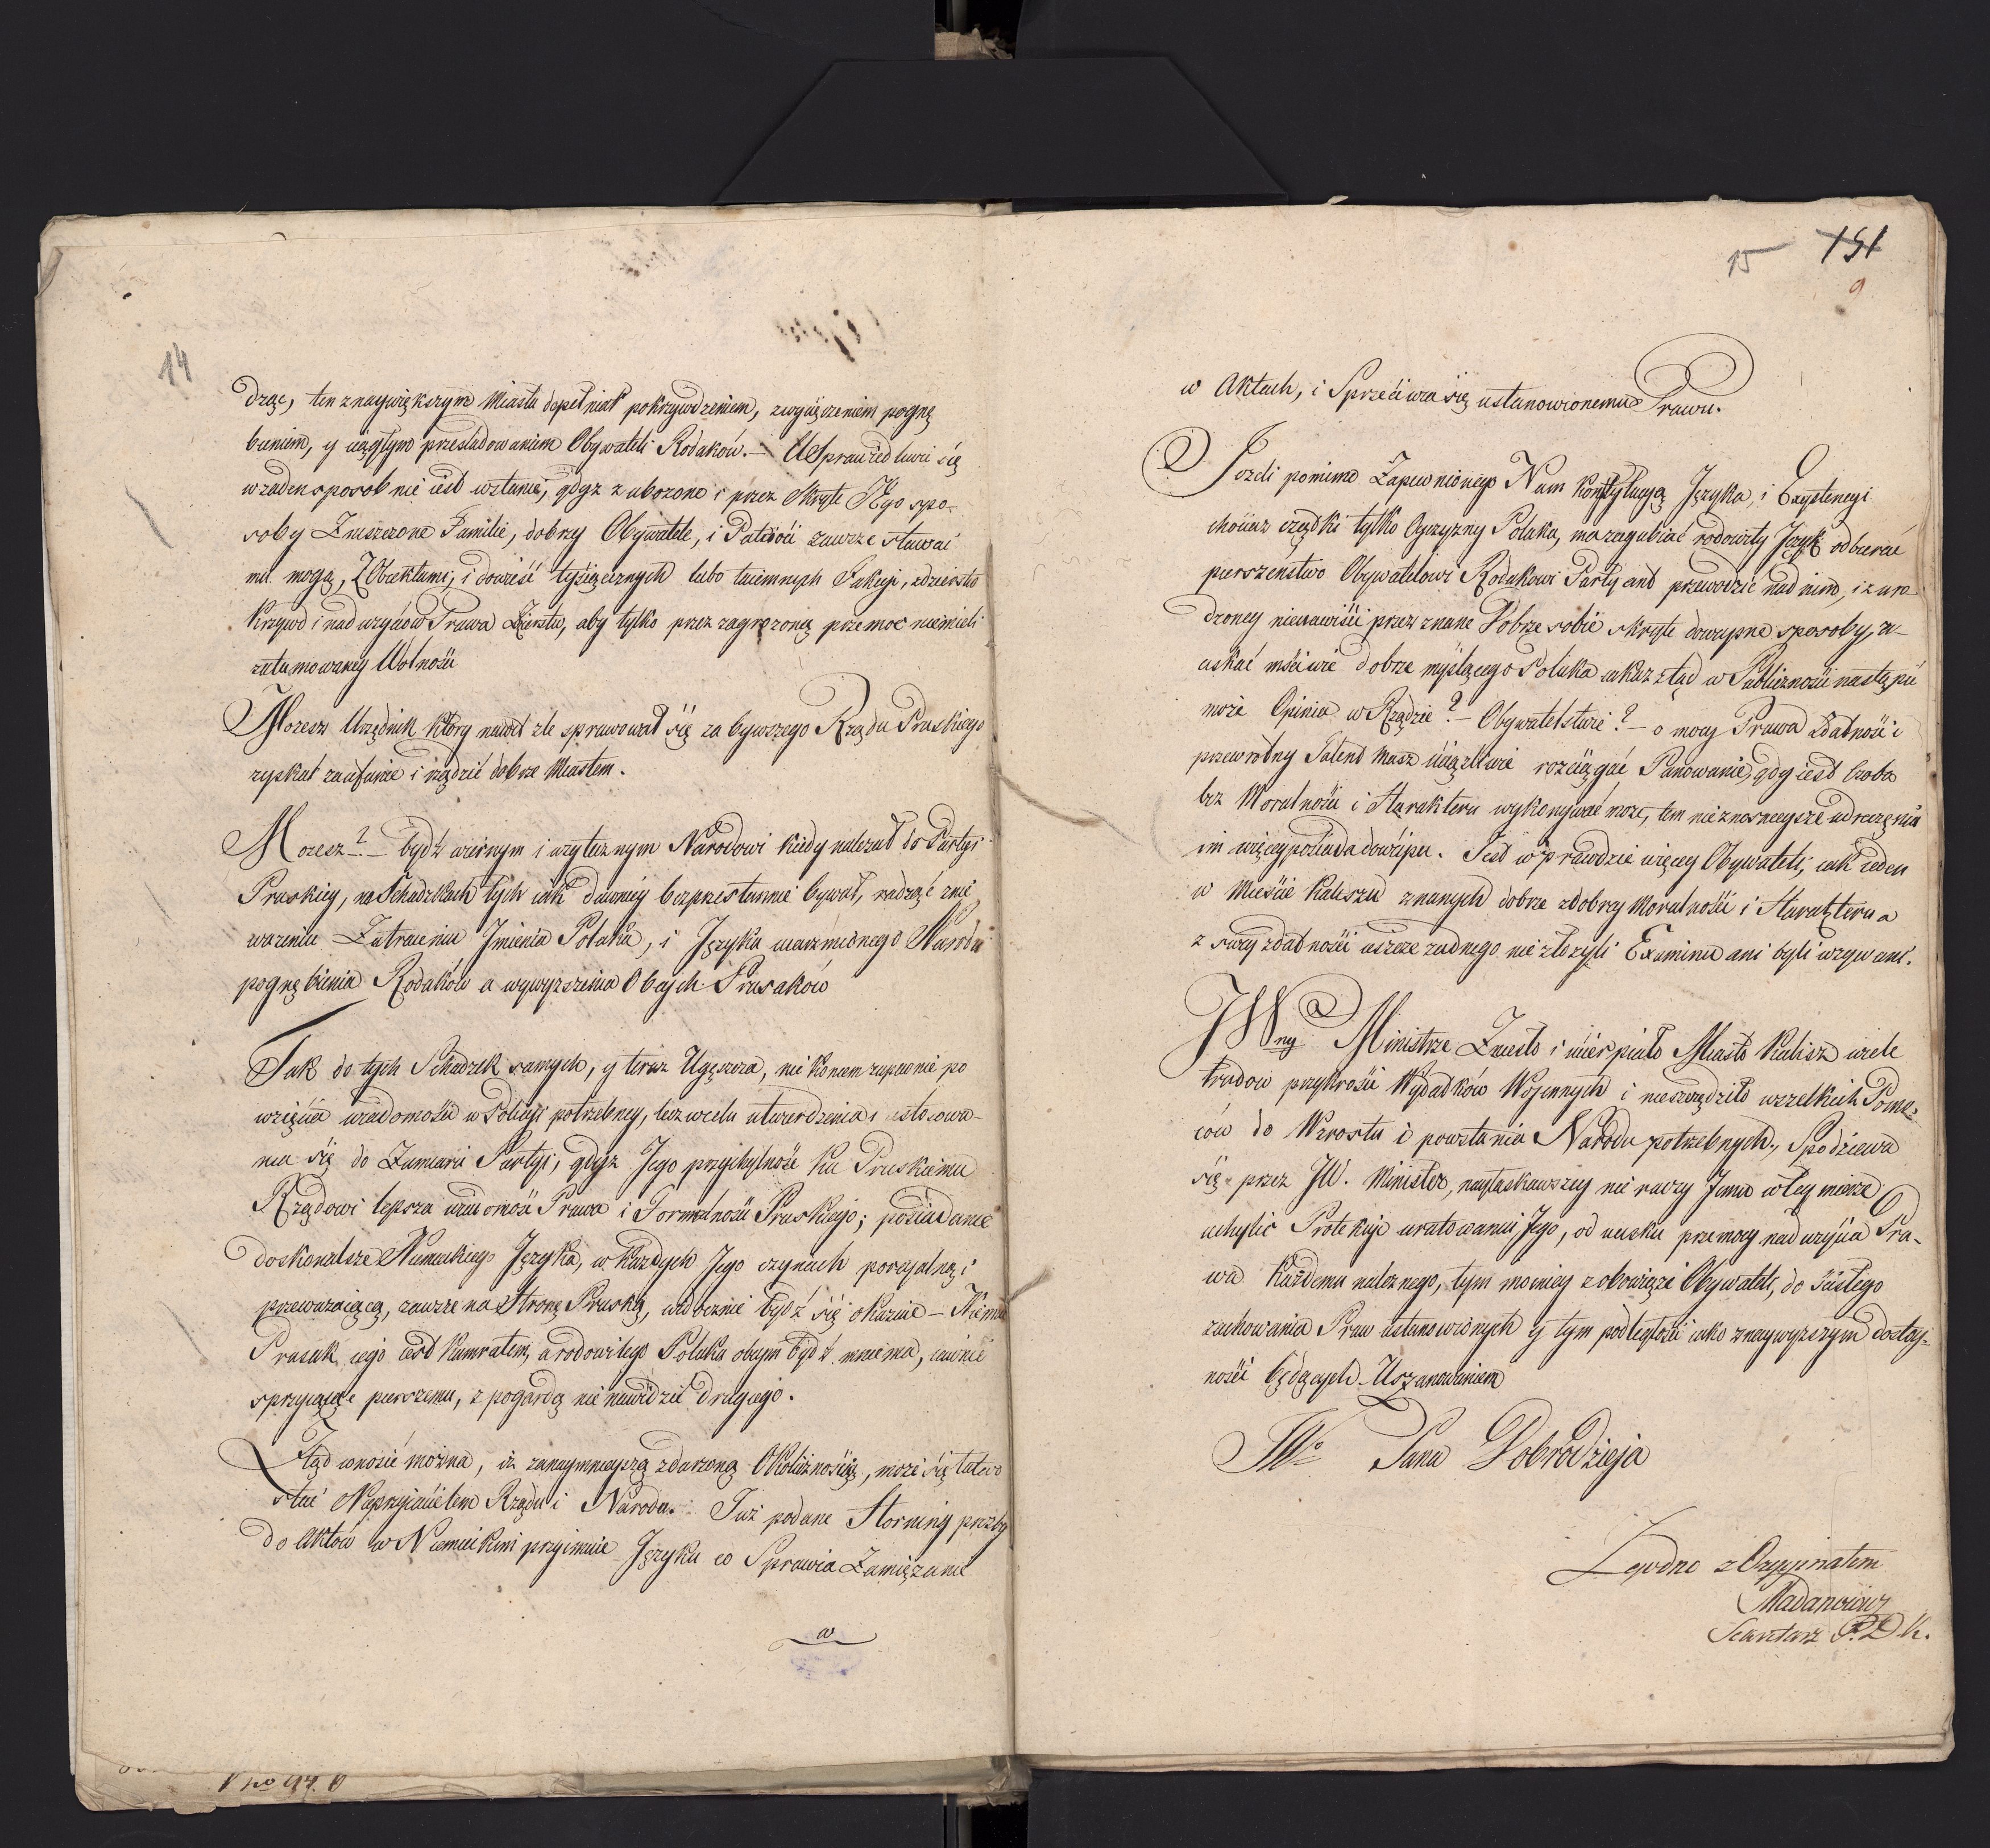 14
dząc, ten z naywiększym Miasta dopełniał pokrzywdzeniem, zwyciężeniem pognę
bieniem, y ciągłym prześladowaniem Obywateli Rodaków. — Usprawiedliwić się
w żaden sposob nie iest wstanie, gdyż zubożone i przez skryte Jego spo-
soby Zniszczone Familie, dobrzy Obywatele, i Patrioci zawsze stawać
mu mogą, Z Obiektami, i dowieść tysiącznych lubo taiemnych Fakcyi, zdzierstw
Krzywd i nadużyciów Prawa, aby tylko przez zagrożoną przemoc niemieli
zatamowaney Wolności
Możesz Urzędnik który nawet źle sprawował się za bywszego Rządu Pruskiego
zyskać zaufanie i rządzić dobrze Miastem.
Możesz? — bydź wiernym i użytecznym Narodowi kiedy należał do Partyi
Pruskiey, na Schadzkach tych iak dawniey bezprzestannie bywał, radząc znie
ważeniu Zatraceniu Imienia Polaka, i Języka uciemiężonego Narodu
pognębienia Rodaków a wywyższenia Obcych Prusaków
Tak do tych Schadzek samych, y teraz Uczęszcza, nie koniem zupełnie po
wzięcia wiadomości w Policyi potrzebney, lecz w celu utwierdzenia i stosowa-
nia się do Zamiaru Partyi, gdyż Jego przychylność ku Pruskiemu
Rządowi lepsza wiadomość Prawa i Formalności Pruskiego; posiadanie
doskonalsze Niemieckiego Języka, w każdych Jego czynach porcyalną i
przeważaiącą, zawsze na Stronę Pruską, widocznie bydź się okazuie —
Prusak iego iest Kamratem, a rodowitego Polaka obcym bydź mniema, iawnie
sprzyiaiąc pierszemu, z pogardą nienawidzić drugiego.
Ztąd wnosić można, iż za naymnieyszą zdarzoną Okolicznością, może się łatwo
stać Nieprzyiacielem Rządu i Narodu. Już podane
do Aktów w Niemieckim przyimuie Języku co Sprawia Zamięszanie
w
15
151
9
w Aktach, i Sprzeciwia się ustanowionemu Prawu.
Jezeli pomimo Zapewnionego Nam Konstytucyą Języka, i Exystencyi
chociaż cząstki tylko Oyczyzny Polaka, ma zagubiać rodowity Język odbierać
pierszeństwo Obywatelowi Rodakowi Partyant przewodzić nad nim, i z uro-
dzoney nienawiści przez znane Dobrze sobie skryte dowcipne sposoby, u-
ciskać mściwie dobrze myślącego Polaka iakaz ztąd w Publiczności nastąpić
może Opinia w Rządzie? — Obywatelstwie? — o mocy Prawa Zdatności i
przewrotny Talent masz uciążliwie rozciągać Panowanie, gdy iest Osoba
bez Moralności i Charakteru wykonywać może, tem nieznośnieysze udręczenia
im więcey posiada dowcipu. Jest w prawdzie więcey Obywateli, iak ieden
w Mieście Kaliszu znanych dobrze z dobrey Moralności i Charakteru a
z swey zdatności ieszcze żadnego nie złożyli Examinu ani byli wzywani.
JWny Ministrze Zniosło i ucierpiało Miasto Kalisz wiele
trudow przykrości Wydatków Woiennych i nieszczędziło wszelkich Pomo-
ców do Wzrostu i powstania Narodu potrzebnych, Spodziewa
się przez JW. Minister, nayłaskawszey nie raczy Jemu w tey mierze
uchylić Protekcyi uratowania Jego, od ucisku przemocy nad użycia Pra-
wa każdemu należnego, tym mocniey zobowiąże Obywatele, do ścisłego
zachowania Praw ustanowionych y tym podległości iako z naywyższym dostoy-
ności będących Uszanowaniem
JWo Pana Dobrodzieja
Zgodno z Oryginałem
Madanowicz
Sekretarz P. D. K.